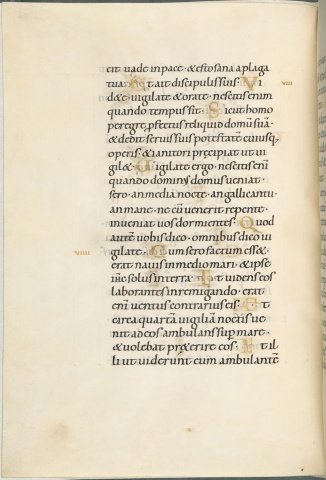 eit vade inpace · & esto sana a plaga
tua · Et ait discipulis suis · Vi
VIII
d&e · vigilate & orate · nescitis enim
quando tempus sit · Sicut homo
peregre pfectus reliquid domū suā ·
& dedit servis suis potestatē cuiusq,
operis · & ianitori precipiat ut vi
gil& · Vigilate ergo · nescitis enī
quando dominus domus veniat ·
sero · an media nocte · an gallicantu ·
an mane · ne cū venerit repente ·
inveniat vos dormientes · Quod
autē vobis dico · omnibus dico vi
gilate · Cum sero factum ess&
VIIII
erat navis in medio mari · & ipse
ihc solus in terra · Et videns eos
laborantes in remigando · erat
enī ventus contrarius eis · Et
circa quartā vigiliā noctis ve
nit ad eos ambulans sup mare ·
& volebat pr&erire eos · Et il
li ut viderunt eum ambulantē